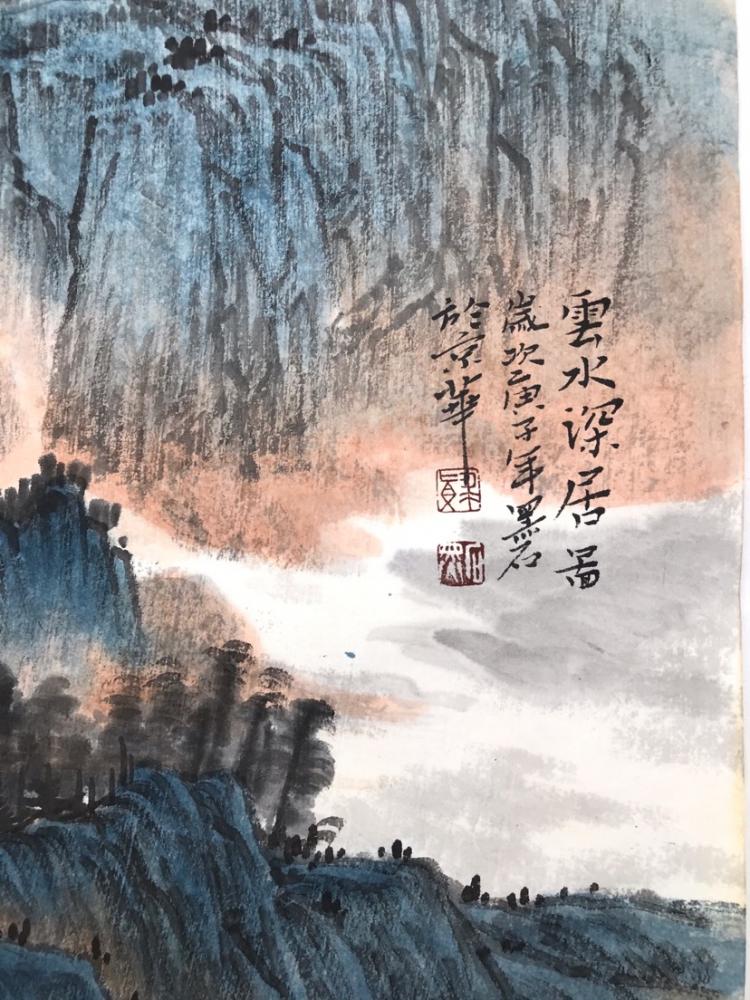 雲水深居啚
歲次庚子年墨石
於京華